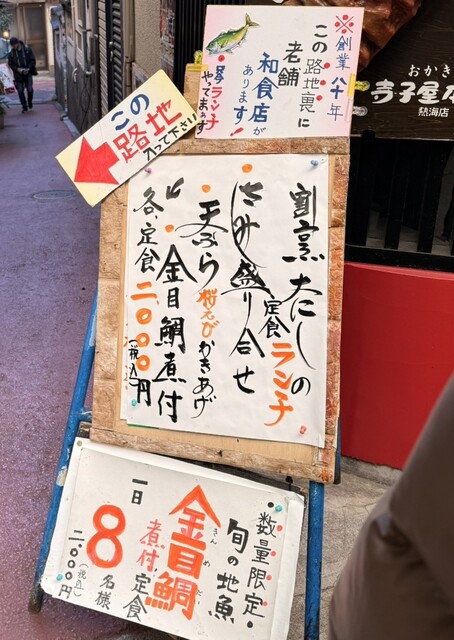 ※創業八十年
この路地裏に
老舗
和食店が
あります!
・昼ランチ
やってまぁす
この
路地
入って下さい
おかき
寺子屋本
熱海店
割烹たしの
定食ランチ
・さしみ盛り合せ
・天ぷら
桜えびかきあげ
・金目鯛煮付
各、定食
二〇〇〇円
(税込)
・数量限定・
旬の地魚
金目鯛
きんめだい
煮付定食
一日
8名様
(税込)
二〇〇〇円